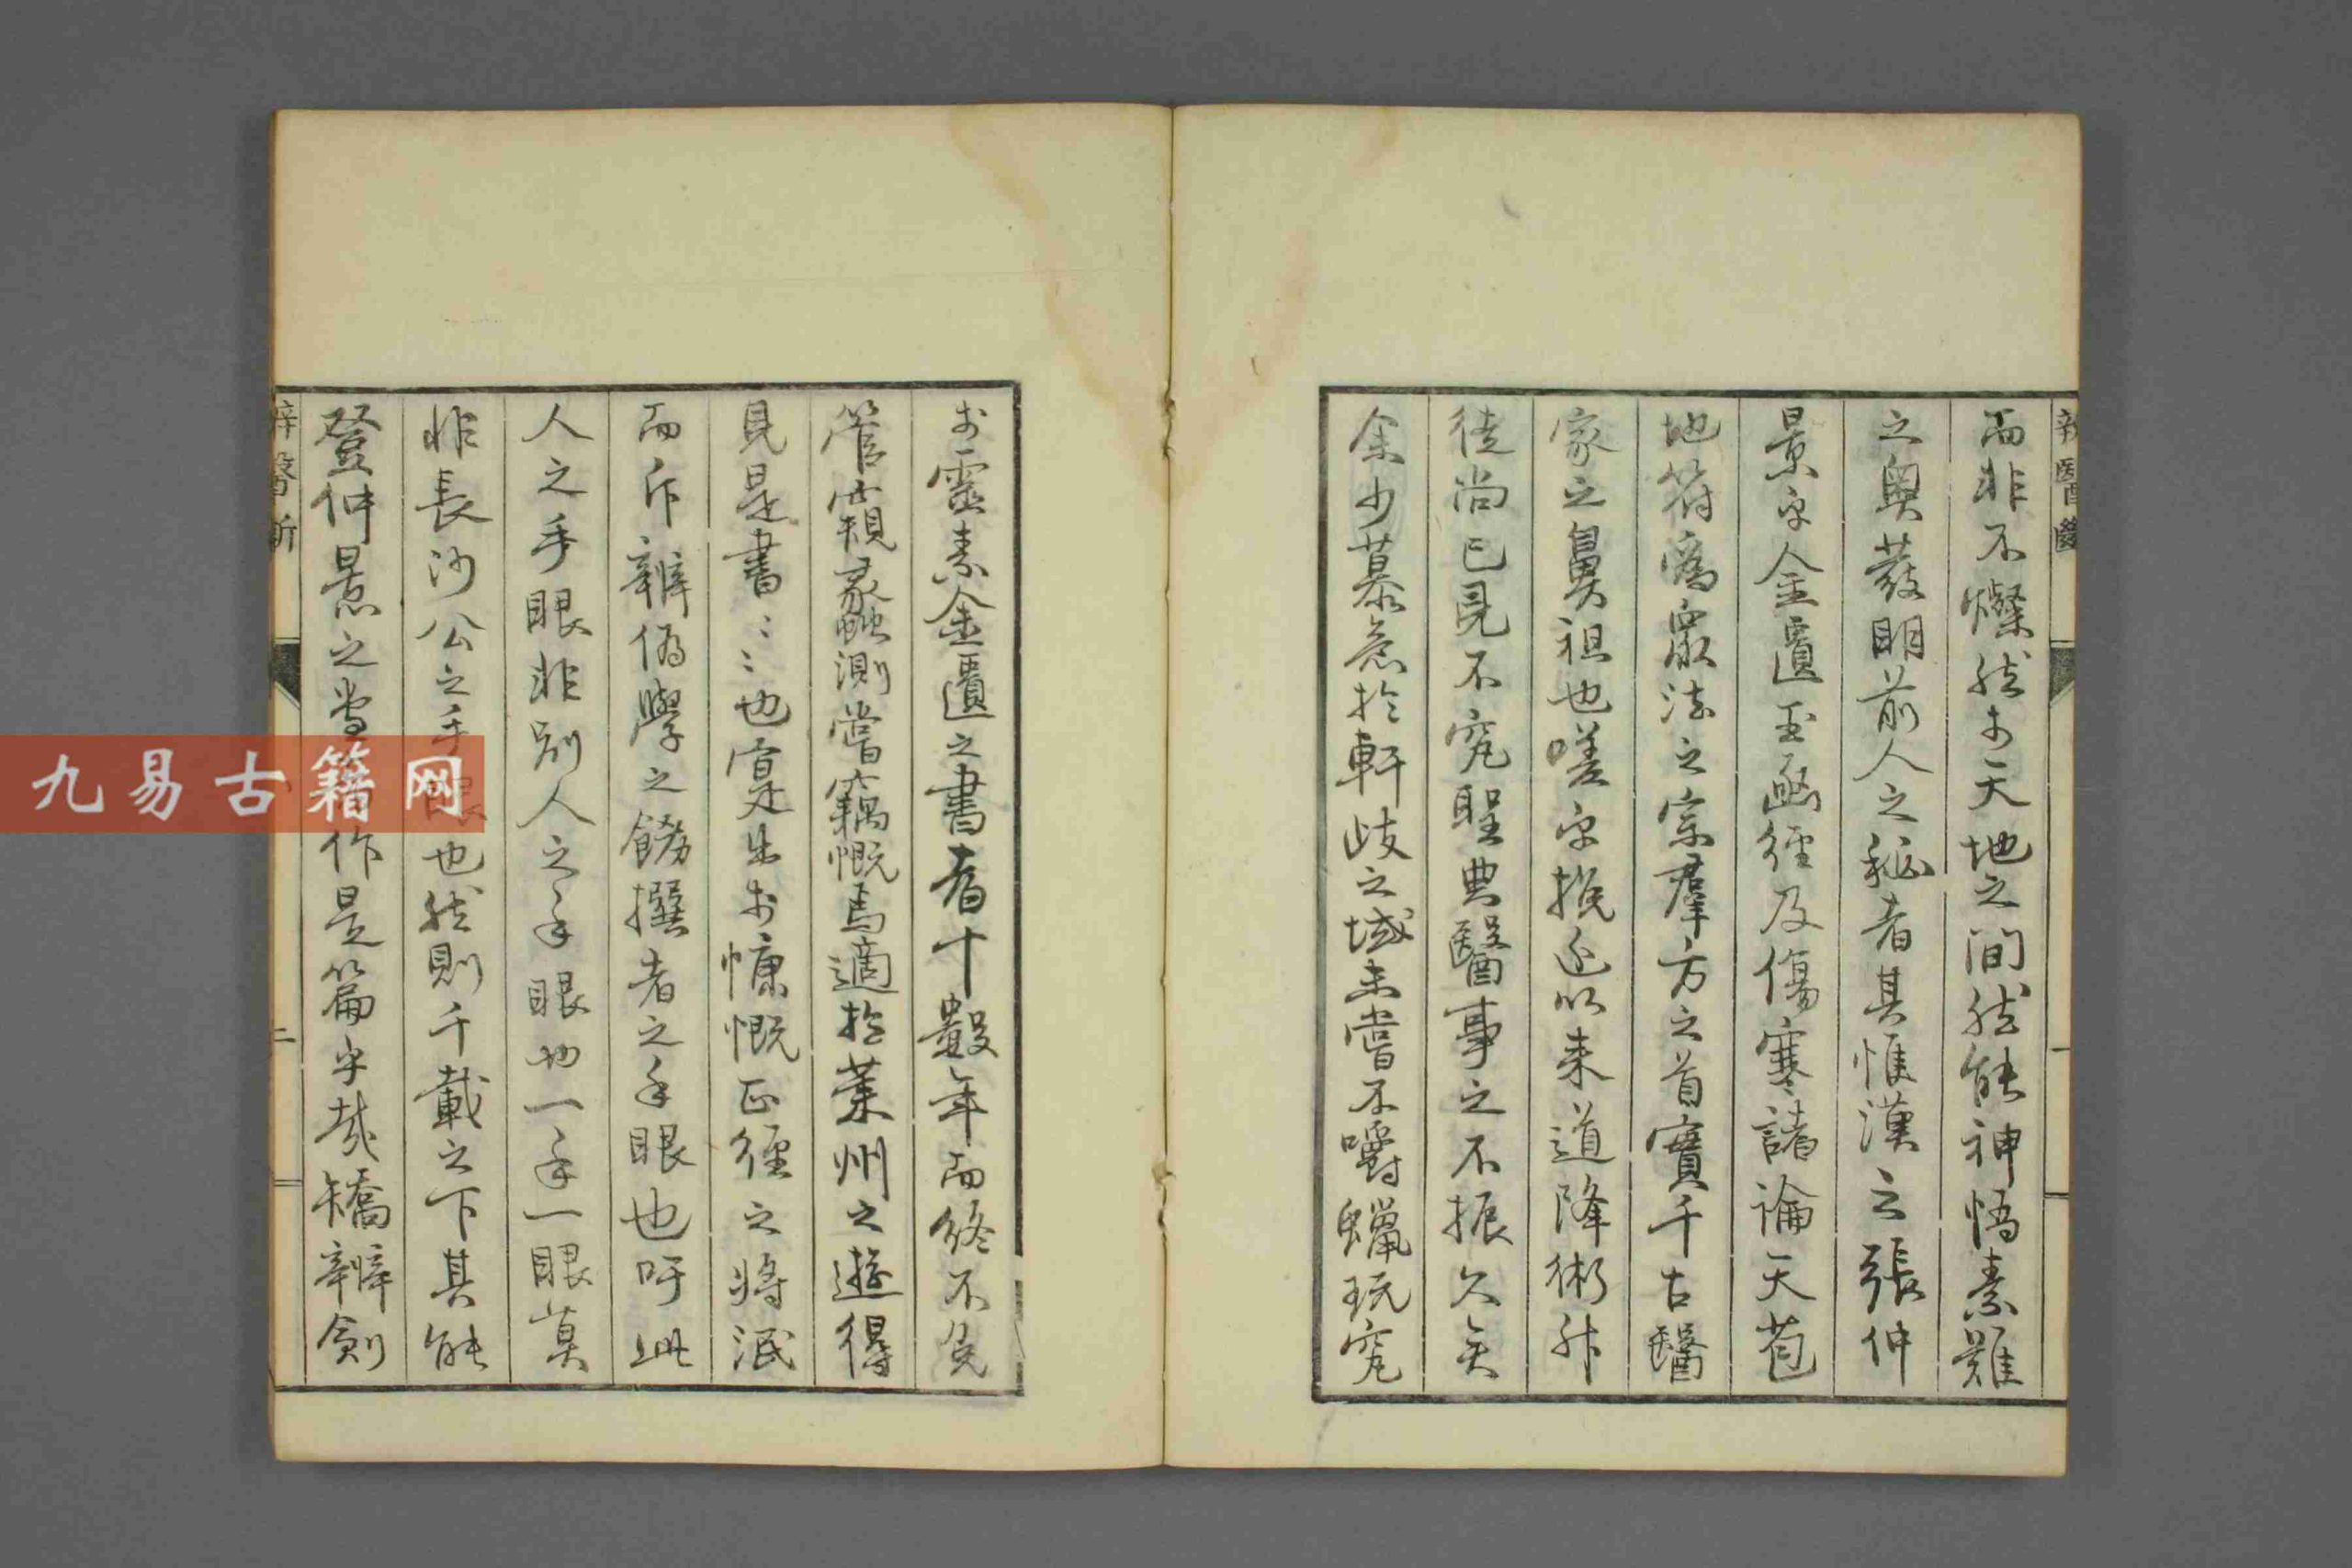 而非不燦然於天地之間然能神悟素難
之奧發明前人之秘者其惟漢之張仲
景乎金匱玉函經及傷寒諸論天苞
地符為眾法之宗群方之首實千古醫
家之鼻祖也嗟乎挽近以來道降術升
徒尚已見不究聖典醫事之不振久矣
余少慕志於軒歧之域未嘗不嚼蠟玩究
於靈素金匱之書者十數年而終不免
管窺蠡測嘗竊慨焉適於萊州之遊得
見是書是書也寔出於慷慨正經之將泯
而斥辨偽學之餝撰者之手眼也吁此
人之手眼非別人之手眼也一手一眼莫
非長沙公之手眼也然則千載之下其能
登仲景之堂作是篇乎哉矯辨劍
九易古籍网